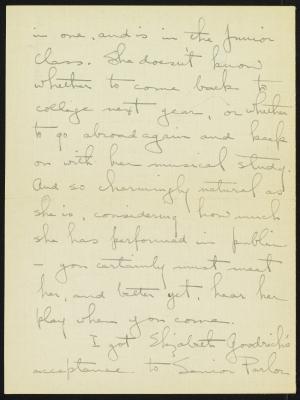 in one, and is in the Junior
class. She doesn't know
whether to come back to
college next year, or whether
to go abroad again and keep
on with her musical study.
And so charmingly natural as
she is, considering how much
she has performed in public
– you certainly must meet
her, and better yet, hear her
play when you come.
I got Elizabeth Goodrich's
acceptance to Senior Parlor